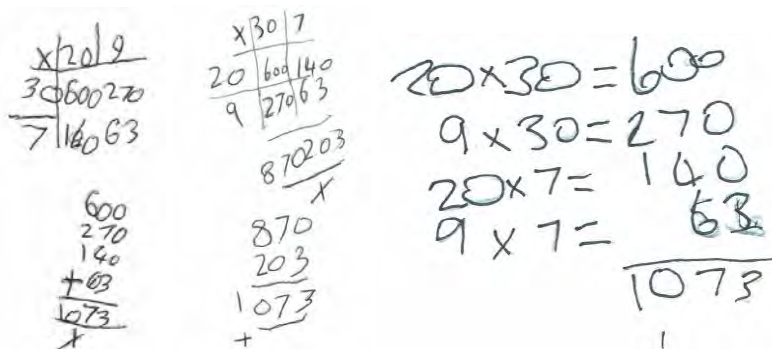 x 20 9
30 600 270
7 140 63
600
270
140
+63
1073
x 30 7
20 600 140
9 270 63
870 203
870
203
1073
+
20 x 30 = 600
9 x 30 = 270
20 x 7 = 140
9 x 7 = 63
1073
1